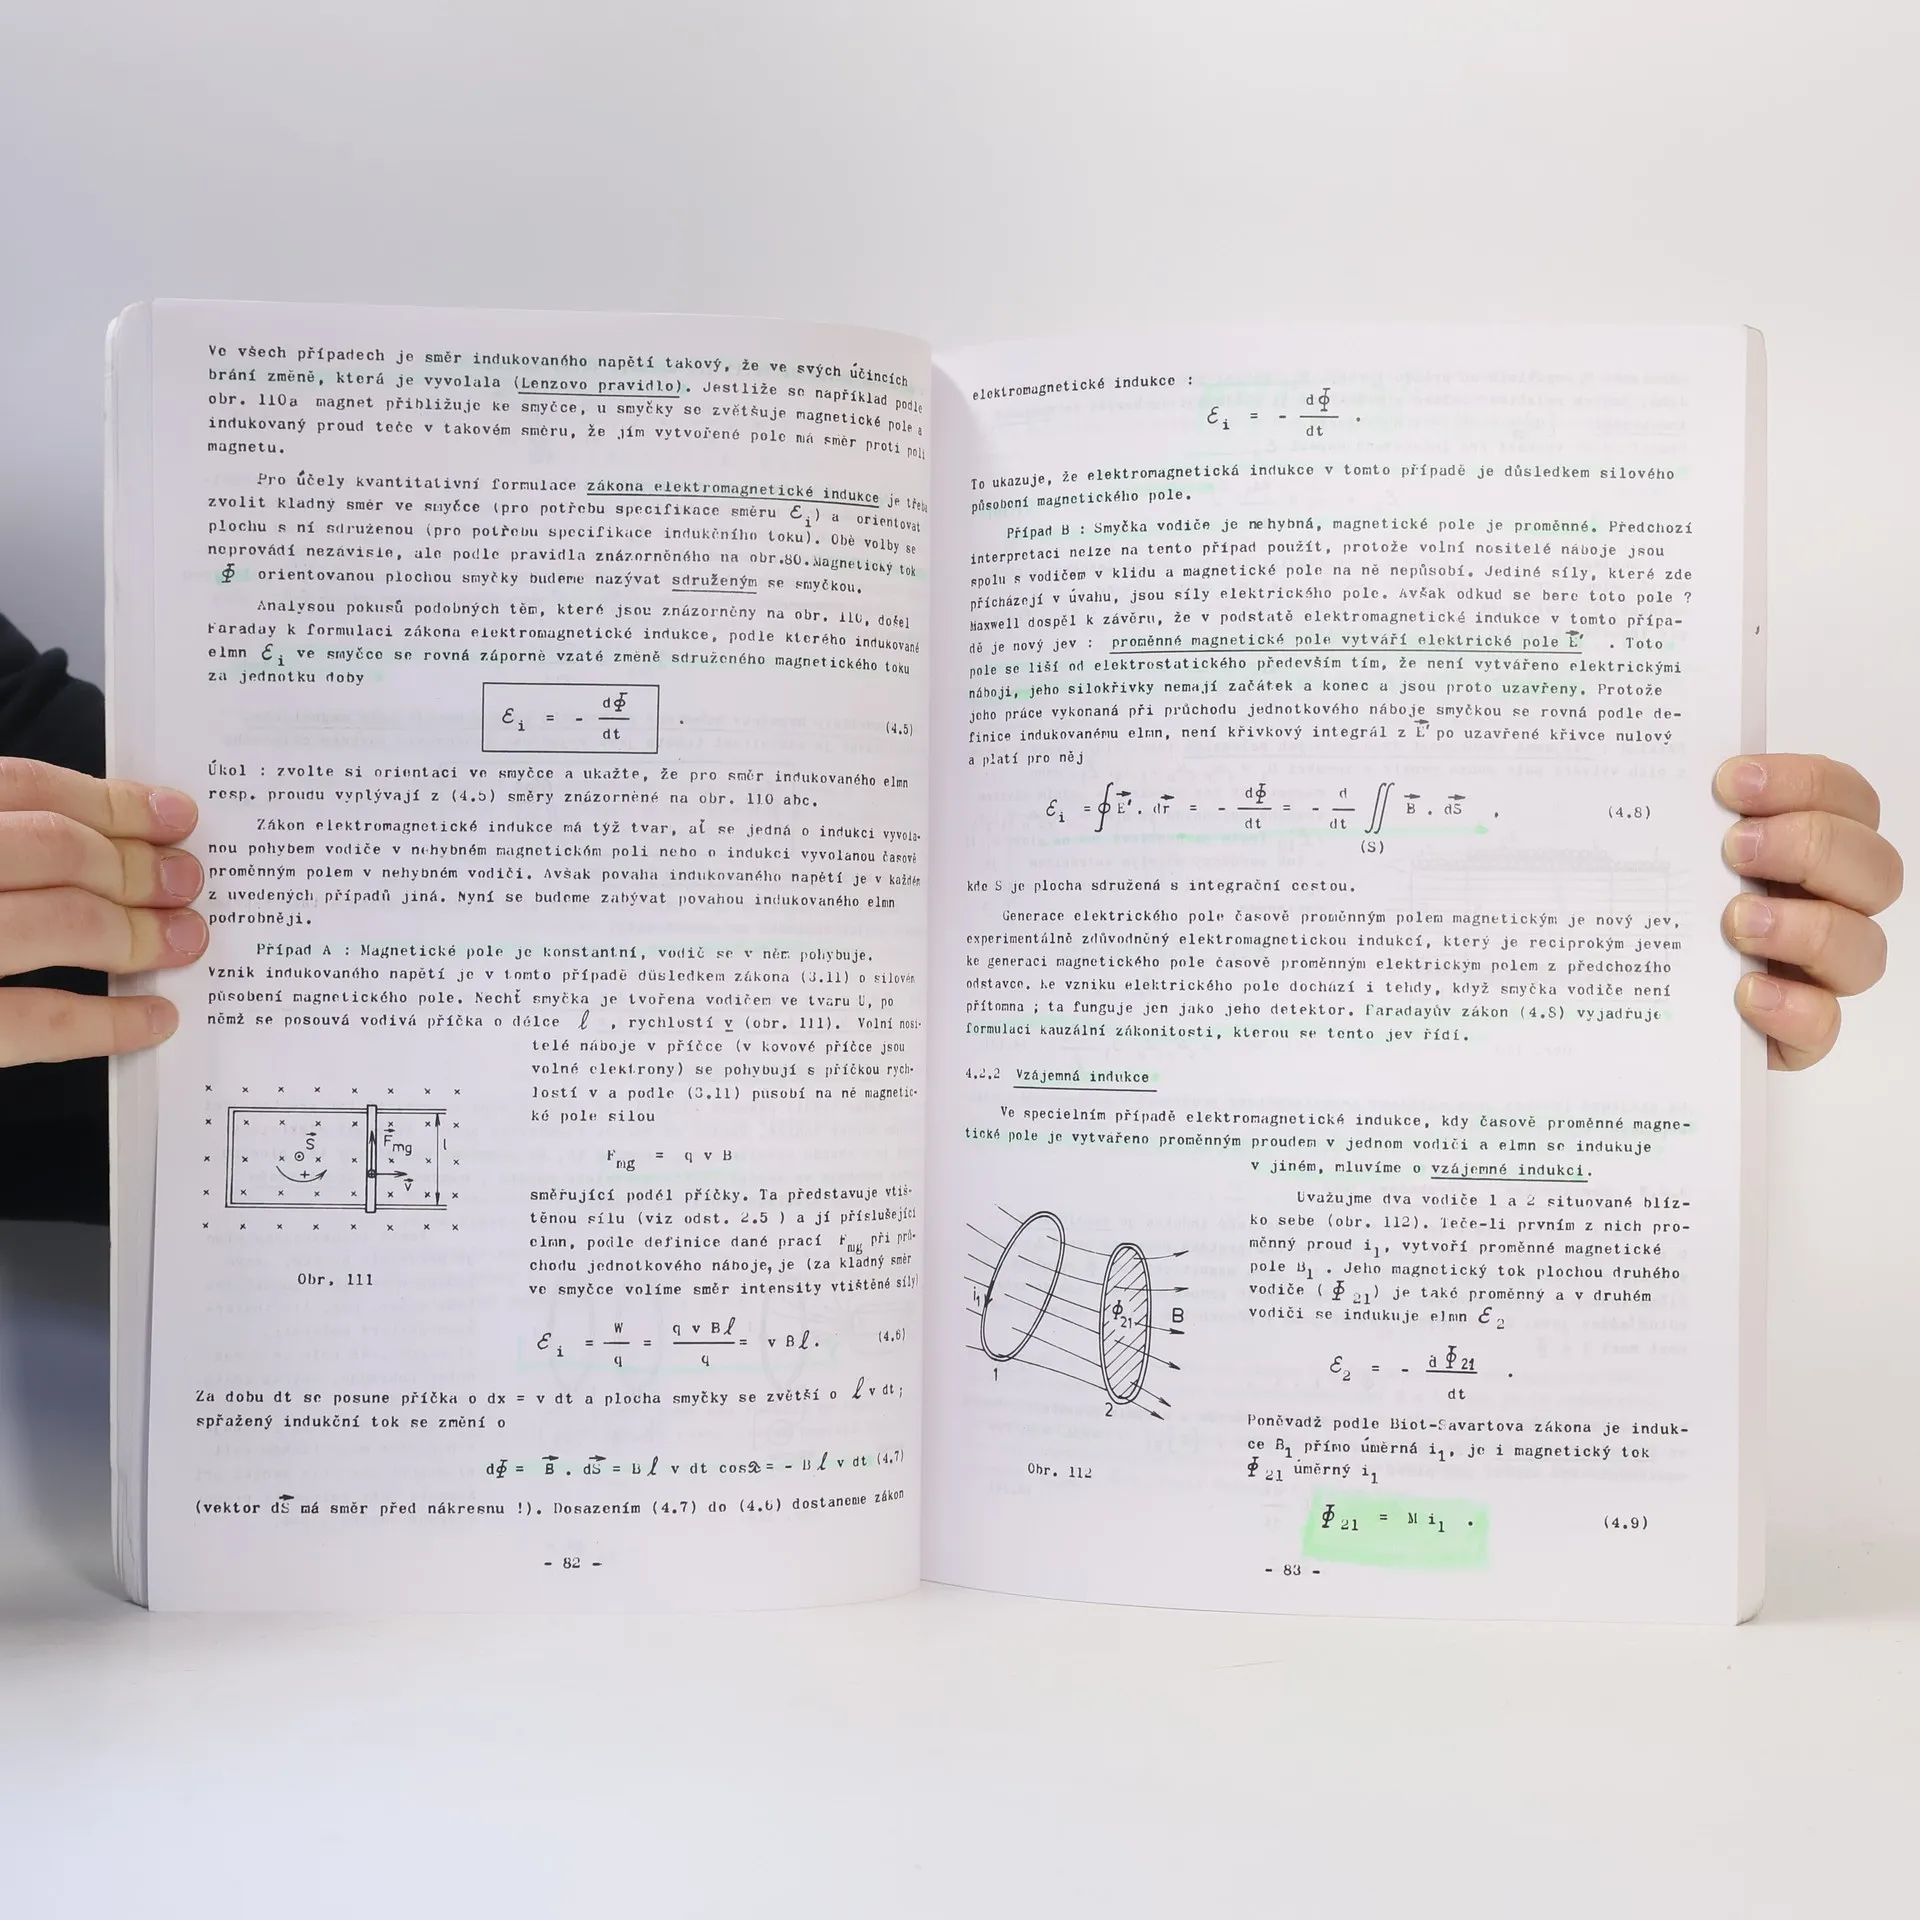 Ve všech případech je směr indukovaného napětí takový, že ve svých účincích
brání změně, která je vyvolala (Lenzovo pravidlo). Jestliže se například podle
obr. 110a magnet přibližuje ke smyčce, u smyčky se zvětšuje magnetické pole a
indukovaný proud teče v takovém směru, že jím vytvořené pole má směr proti poli
magnetu.
Pro účely kvantitativní formulace zákona elektromagnetické indukce je třeba
zvolit kladný směr ve smyčce (pro potřebu specifikace směru ℰi) a orientovat
plochu s ní sdruženou (pro potřebu specifikace indukčního toku). Obě volby se
neprovádí nezávisle, ale podle pravidla znázorněného na obr.80. Magnetický tok
Φ orientovanou plochou smyčky budeme nazývat sdruženým se smyčkou.
Analysou pokusů podobných těm, které jsou znázorněny na obr. 110, došel
Faraday k formulaci zákona elektromagnetické indukce, podle kterého indukované
elmn ℰi ve smyčce se rovná záporně vzaté změně sdruženého magnetického toku
za jednotku doby
ℰi = - dΦ/dt . (4.5)
Úkol : zvolte si orientaci ve smyčce a ukažte, že pro směr indukovaného elmn
resp. proudu vyplývají z (4.5) směry znázorněné na obr. 110 abc.
Zákon elektromagnetické indukce má týž tvar, ať se jedná o indukci vyvola-
nou pohybem vodiče v nehybném magnetickém poli nebo o indukci vyvolanou časově
proměnným polem v nehybném vodiči. Avšak povaha indukovaného napětí je v každém
z uvedených případů jiná. Nyní se budeme zabývat povahou indukovaného elmn
podrobněji.
Případ A : Magnetické pole je konstantní, vodič se v něm pohybuje.
Vznik indukovaného napětí je v tomto případě důsledkem zákona (3.11) o silovém
působení magnetického pole. Nechť smyčka je tvořena vodičem ve tvaru U, po
němž se posouvá vodivá příčka o délce ℓ , rychlostí v (obr. 111). Volní nosi-
telé náboje v příčce (v kovové příčce jsou
volné elektrony) se pohybují s příčkou rych-
lostí v a podle (3.11) působí na ně magnetic-
ké pole silou
Fmg = q v B
směřující podél příčky. Ta představuje vtiš-
těnou sílu (viz odst. 2.5 ) a jí příslušející
elmn, podle definice dané prací Fmg při prů-
chodu jednotkového náboje, je (za kladný směr
ve smyčce volíme směr intensity vtištěné síly)
S⃗
+
F⃗mg
v⃗
l
Obr. 111
ℰi = W/q = q v Bℓ/q = v Bℓ. (4.6)
Za dobu dt se posune příčka o dx = v dt a plocha smyčky se zvětší o ℓ v dt;
spřažený indukční tok se změní o
dΦ = B⃗ . dS⃗ = B ℓ v dt cosπ = - B ℓ v dt (4.7)
(vektor dS⃗ má směr před nákresnu !). Dosazením (4.7) do (4.6) dostaneme zákon
- 82 -
elektromagnetické indukce :
ℰi = - dΦ/dt .
To ukazuje, že elektromagnetická indukce v tomto případě je důsledkem silového
působení magnetického pole.
Případ B : Smyčka vodiče je nehybná, magnetické pole je proměnné. Předchozí
interpretaci nelze na tento případ použít, protože volní nositelé náboje jsou
spolu s vodičem v klidu a magnetické pole na ně nepůsobí. Jediné síly, které zde
přicházejí v úvahu, jsou síly elektrického pole. Avšak odkud se bere toto pole ?
Maxwell dospěl k závěru, že v podstatě elektromagnetické indukce v tomto přípa-
dě je nový jev : proměnné magnetické pole vytváří elektrické pole E⃗′ . Toto
pole se liší od elektrostatického především tím, že není vytvářeno elektrickými
náboji, jeho silokřivky nemají začátek a konec a jsou proto uzavřeny. Protože
jeho práce vykonaná při průchodu jednotkového náboje smyčkou se rovná podle de-
finice indukovanému elmn, není křivkový integrál z E⃗′ po uzavřené křivce nulový
a platí pro něj
ℰi = ∮ E⃗′. dr⃗ = - dΦ/dt = - d/dt ∬(S) B⃗ . dS⃗ , (4.8)
kde S je plocha sdružená s integrační cestou.
Generace elektrického pole časově proměnným polem magnetickým je nový jev,
experimentálně zdůvodněný elektromagnetickou indukcí, který je reciprokým jevem
ke generaci magnetického pole časově proměnným elektrickým polem z předchozího
odstavce. Ke vzniku elektrického pole dochází i tehdy, když smyčka vodiče není
přítomna ; ta funguje jen jako jeho detektor. Faradayův zákon (4.8) vyjadřuje
formulaci kauzální zákonitosti, kterou se tento jev řídí.
4.2.2 Vzájemná indukce
Ve specielním případě elektromagnetické indukce, kdy časově proměnné magne-
tické pole je vytvářeno proměnným proudem v jednom vodiči a elmn se indukuje
v jiném, mluvíme o vzájemné indukci.
Uvažujme dva vodiče 1 a 2 situované blíz-
ko sebe (obr. 112). Teče-li prvním z nich pro-
měnný proud i1, vytvoří proměnné magnetické
pole B1 . Jeho magnetický tok plochou druhého
vodiče ( Φ21) je také proměnný a v druhém
vodiči se indukuje elmn ℰ2
i1
Φ21
B
1
2
Obr. 112
ℰ2 = - dΦ21/dt .
Poněvadž podle Biot-Savartova zákona je induk-
ce B1 přímo úměrná i1, je i magnetický tok
Φ21 úměrný i1
Φ21 = M i1 . (4.9)
- 83 -